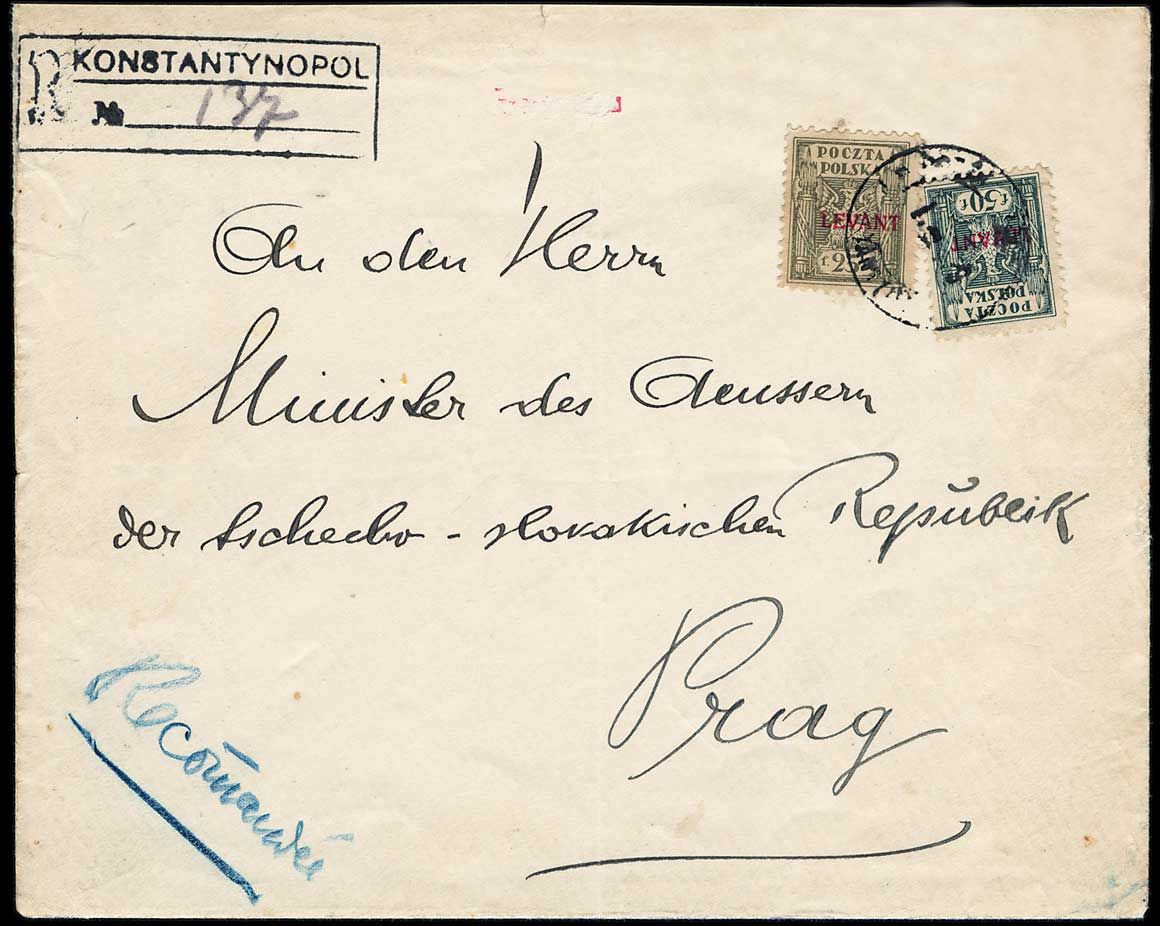 R KONSTANTYNOPOL
№ 137
POCZTA
POLSKA
LEVANT
f. 2
f. 50 f.
LEVANT
POCZTA
POLSKA
An den Herrn
Minister des Aeussern
der tschecho-slovakischen Republik
Prag
Recom̄andée